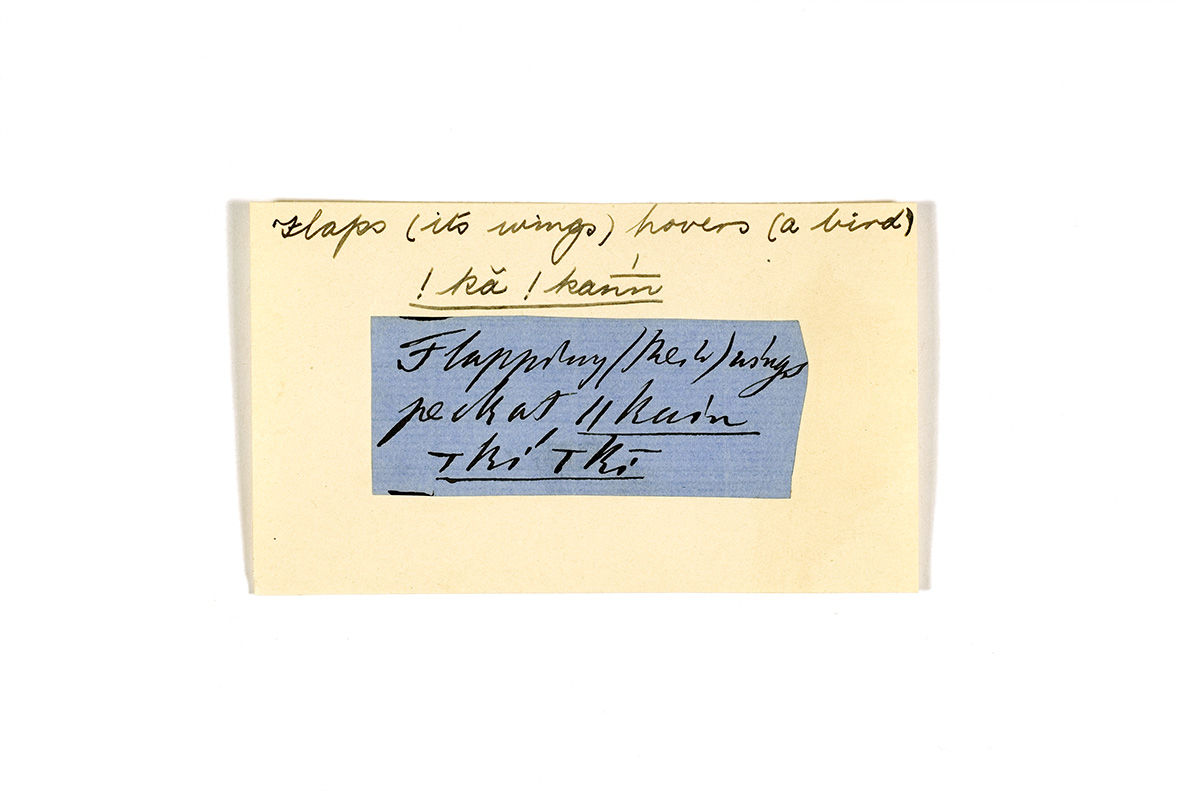 Flaps (its wings) hovers (a bird)
! kă ! kan̄ń
Flapping (their) wings
peck at, ǁkaún
Tkí, Tkī